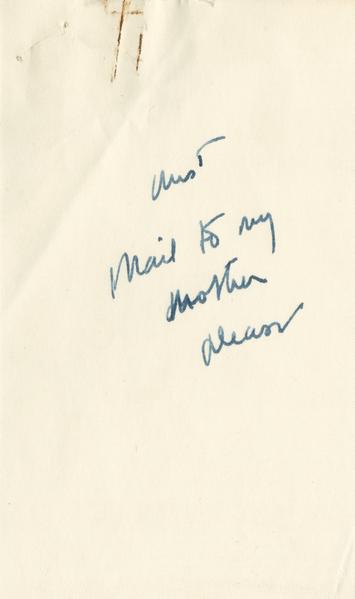 Mail to my
mother
please